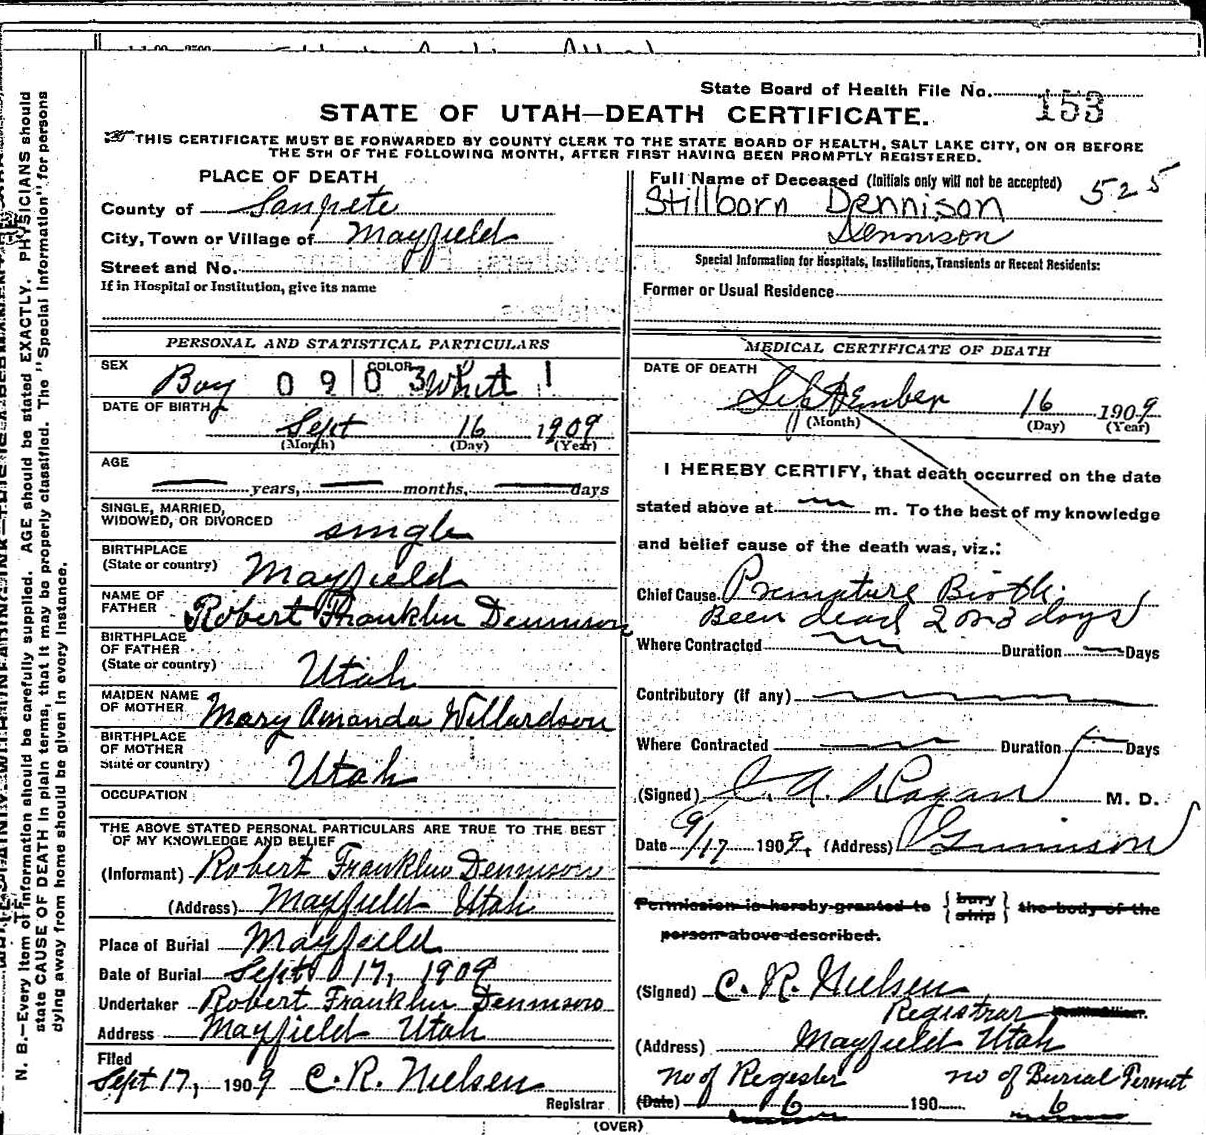 State Board of Health File No. 153
STATE OF UTAH—DEATH CERTIFICATE.
THIS CERTIFICATE MUST BE FORWARDED BY COUNTY CLERK TO THE STATE BOARD OF HEALTH, SALT LAKE CITY, ON OR BEFORE
THE 5TH OF THE FOLLOWING MONTH, AFTER FIRST HAVING BEEN PROMPTLY REGISTERED.
PLACE OF DEATH
County of Sanpete
City, Town or Village of Mayfield
Street and No.
If in Hospital or Institution, give its name
Full Name of Deceased (Initials only will not be accepted) 525
Stillborn Dennison
Dennison
Special Information for Hospitals, Institutions, Transients or Recent Residents:
Former or Usual Residence
PERSONAL AND STATISTICAL PARTICULARS
SEX Boy 09 10 3 COLOR White 1
DATE OF BIRTH
Sept 16 1909
(Month) (Day) (Year)
AGE
years, months, days
SINGLE, MARRIED,
WIDOWED, OR DIVORCED single
BIRTHPLACE
(State or country) Mayfield
NAME OF
FATHER Robert Franklin Dennison
BIRTHPLACE
OF FATHER
(State or country) Utah
MAIDEN NAME
OF MOTHER Mary Amanda Willardson
BIRTHPLACE
OF MOTHER
State or country) Utah
OCCUPATION
THE ABOVE STATED PERSONAL PARTICULARS ARE TRUE TO THE BEST
OF MY KNOWLEDGE AND BELIEF
(Informant) Robert Franklin Dennison
(Address) Mayfield Utah
Place of Burial Mayfield
Date of Burial Sept 17, 1909
Undertaker Robert Franklin Dennison
Address Mayfield Utah
Filed
Sept 17, 1909 C. R. Nielsen
Registrar
MEDICAL CERTIFICATE OF DEATH
DATE OF DEATH
September 16 1909
(Month) (Day) (Year)
I HEREBY CERTIFY, that death occurred on the date
stated above at m. To the best of my knowledge
and belief cause of the death was, viz.:
Chief Cause Premature Birth
Been dead 2 or 3 days
Where Contracted Duration Days
Contributory (if any)
Where Contracted Duration Days
(Signed) J. A. Hagan M. D.
Date 9/17 1909, (Address) Gunnison
Permission is hereby granted to {bury ship} the body of the
person above described.
(Signed) C. R. Nielsen
Registrar
(Address) Mayfield Utah
no of Register no of Burial Permit
(Date) 6 190 6
(OVER)
N. B.—Every item of information should be carefully supplied. AGE should be stated EXACTLY. PHYSICIANS should
state CAUSE OF DEATH in plain terms, that it may be properly classified. The "Special Information" for persons
dying away from home should be given in every instance.